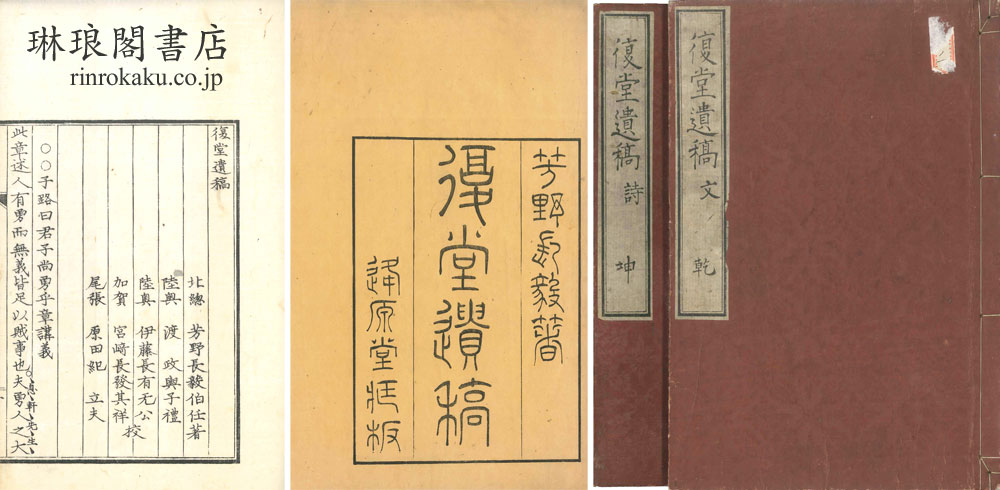 琳琅閣書店
rinrokaku.co.jp
復堂遺稿
北總 芳野長毅伯任著
陸奥 渡 政輿子禮
陸奥 伊藤長有无公
加賀 宮﨑長發其祥
校
尾張 原田紀 立夫
○○子路曰君子尚勇乎章講義
此章述人有勇而無義皆足以賊事也夫勇人之大
息軒先生
芳野長毅著
復堂遺稿
逢原堂 板
復堂遺稿 詩 坤
復堂遺稿 文 乾